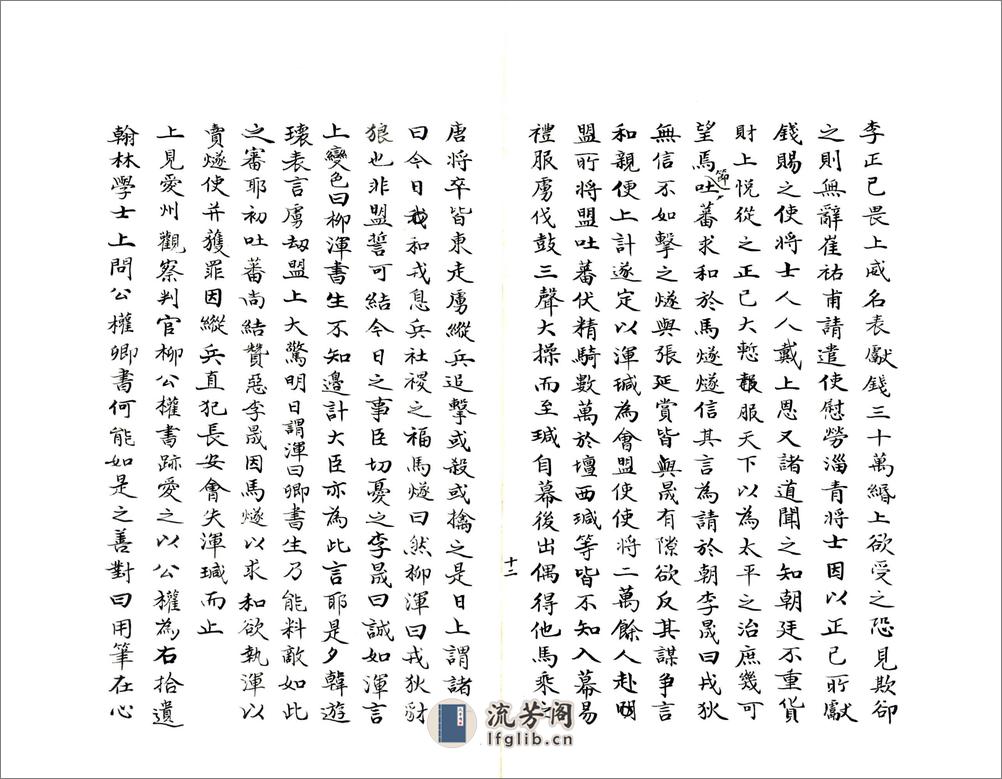 李正己畏上威名表獻錢三十萬緡上欲受之恐見欺卻
之則無辭崔祐甫請遣使慰勞淄青將士因以正己所獻
錢賜之使將士人人戴上恩又諸道聞之知朝廷不重貨
財上悅從之正己大慙報服天下以為太平之治庶幾可
望焉吐蕃求和於馬燧燧信其言為請於朝李晟曰戎狄
節一
無信不如擊之燧與張延賞皆與晟有隙欲反其謀爭言
和親便上計遂定以渾瑊為會盟使使將二萬餘人赴盟
盟所將盟吐蕃伏精騎數萬於壇西瑊等皆不知入幕易
禮服虜伐鼓三聲大操而至瑊自幕後出偶得他馬乘之
十二
唐將卒皆東走虜縱兵追擊或殺或擒之是日上謂諸
曰今日我和戎息兵社禝之福馬燧曰然柳渾曰戎狄豺
狼也非盟誓可結今日之事臣切憂之李晟曰誠如渾言
上變色曰柳渾書生不知邊計大臣亦為此言耶是夕韓遊
瓌表言虜劫盟上大驚明日謂渾曰卿書生乃能料敵如此
之審耶初吐蕃尚結贊惡李晟因馬燧以求和欲執渾以
賣燧使并獲罪因縱兵直犯長安會失渾瑊而止
上見愛州觀察判官柳公權書跡愛之以公權為右拾遺
翰林學士上問公權卿書何能如是之善對曰用筆在心
流芳阁
lfglib.cn